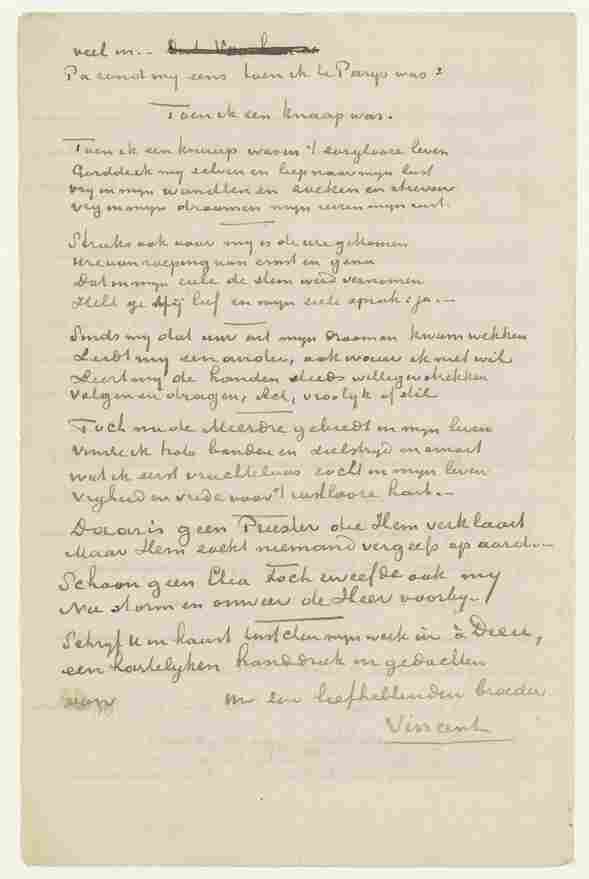 veel in.-
Pa zond my eens toen ik te Parys was:
Toen ik een knaap was.
Toen ik een knaap was in 't zorglooze leven
Gorddeek my zelven en liep naar mijn lust
vry in mijn wandlen en zoeken en streven
Vry in mijn droomen mijn reizen mijn rust.
Straks ook voor my is de ure gekomen
Ure van roeping van ernst en gena
Dat in mijn ziele de stem werd vernomen
Hebt ge Mij lief en mijn ziele sprak: ja.-
Sinds my dat uur uit mijn droomen kwam wekken
Leidt my een ander, ook waar ik niet wil
Leert my de handen steeds williger strekken
Volgen en dragen, vroolyk of stil
Toch nu de Meerdre gebiedt in mijn leven
Vind ik trots banden en zielstryd en smart
wat ik eerst vruchteloos zocht in mijn leven
Vryheid en vrede voor 't rustlooze hart.-
Daar is geen Priester die Hem verklaart
Maar Hem zoekt niemand vergeefs op aard.-
Schoon geen Elia Toch zweefde ook my
Na storm en onweer de Heer voorby.
Schryf U in haast mijn werk in à Dieu,
een hartelyken handdruk in gedachten
van uw liefhebbenden broeder
Vincent